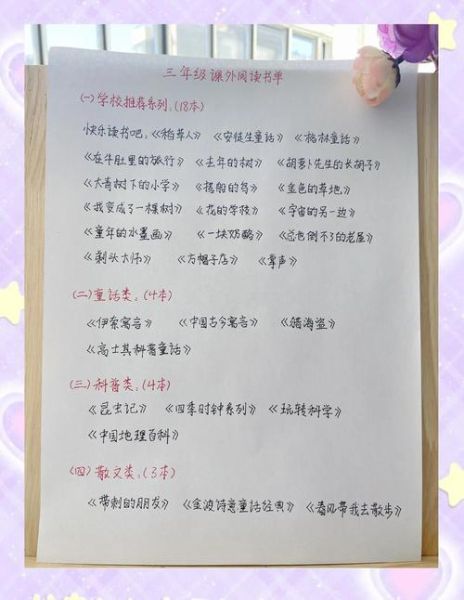 三年级课外阅读书单
(一)学校推荐系列:(18本)
快乐读书吧:《稻草人》 《安徒生童话》 《格林童话》
《在牛肚里的旅行》 《去年的树》 《胡萝卜先生的长胡子》
《大青树下的小学》 《搭船的鸟》 《金色的草地》
《我变成了一棵树》 《花的学校》 《宇宙的另一边》
《童年的水墨画》 《一块奶酪》 《总也倒不了的老屋》
《剃头大师》 《方帽子店》 《掌声》
(二)童话类:(4本)
《伊索寓言》 《中国古今寓言》 《猫海盗》
《高士其科普童话》
(三)科普类:(4本)
《昆虫记》 《四季时钟系列》 《玩转科学》
《中国地理百科》
(四)散文类:(3本)
《带刺的朋友》 《金波诗意童话经典》 《春风带我去散步》